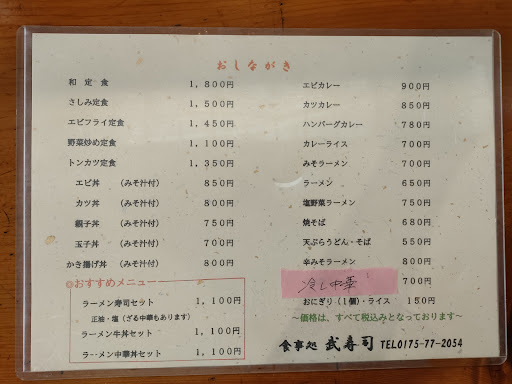 おしながき
和定食 1,800円
さしみ定食 1,500円
エビフライ定食 1,450円
野菜炒め定食 1,100円
トンカツ定食 1,350円
エビ丼 (みそ汁付) 850円
カツ丼 (みそ汁付) 800円
親子丼 (みそ汁付) 750円
玉子丼 (みそ汁付) 700円
かき揚げ丼 (みそ汁付) 850円
◎おすすめメニュー
ラーメン寿司セット 1,100円
正油・塩(ざる中華もあります)
ラーメン牛丼セット 1,100円
ラーメン中華丼セット 1,100円
エビカレー 900円
カツカレー 850円
ハンバーグカレー 780円
カレーライス 700円
みそラーメン 700円
ラーメン 650円
塩野菜ラーメン 750円
焼そば 680円
天ぷらうどん・そば 550円
辛みそラーメン 800円
冷し中華 700円
おにぎり(1個)・ライス 150円
~価格は、すべて税込みとなっております~
食事処 武寿司 TEL0175-77-2054